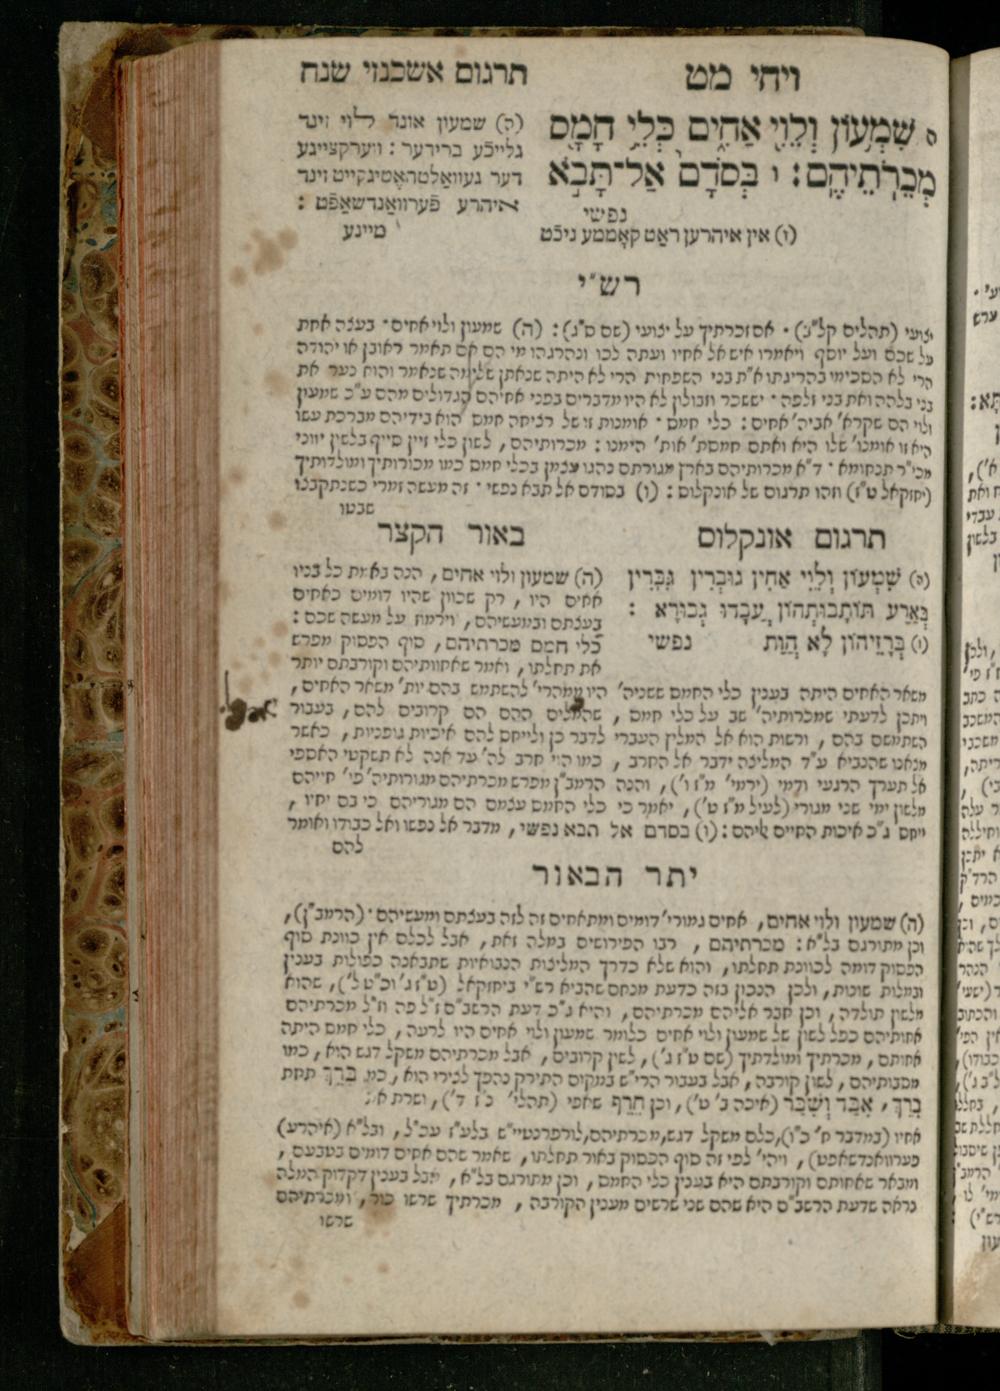 ויחי מט
תרגום אשכנזי שנח
ה שִׁמְע֥וֹן וְלֵוִ֖י אַחִ֑ים כְּלֵ֥י חָמָ֖ס
מְכֵרֹתֵיהֶֽם: ו בְּסֹדָם֙ אַל־תָּבֹ֣א
נפשי
(ה) שמעון אונד לוי זינד
גלייכֿע ברידער: ווערקצייגע
דער געוואַלטהאֶטיגקייט זינד
איהרע פֿערוואַנדשאַפֿט:
(ו) אין איהרען ראַט קאָממע ניכֿט
מיינע
רש"י
יצועי (תהלים קל"ב) · אם זכרתיך על יצועי (שם ס"ג): (ה) שמעון ולוי אחים · בעצה אחת
על שכם ועל יוסף ויאמרו איש אל אחיו ועתה לכו ונהרגהו מי הם אם תאמר ראובן או יהודה
הרי לא הסכימו בהריגתו א"ת בני השפחות הרי לא היתה שנאתן שלימה שנאמר והוא נער את
בני בלהה ואת בני זלפה · יששכר וזבולון לא היו מדברים בפני אחיהם הגדולים מהם ע"כ שמעון
ולוי הם שקרא' אביה' אחים: כלי חמס · אומנות זו של רציחה חמס הוא בידיהם מברכת עשו
היא זו אומנו' שלו היא ואתם חמסת' אות' הימנו: מכרותיהם, לשון כלי זיין סייף בלשון יווני
מכי"ר תנחומא · ד"א מכרותיהם בארץ מגורתם נהגו עצמן בכלי חמס כמו מכורותיך ומולדותיך
(יחזקאל ט"ז) וזהו תרגום של אונקלוס: (ו) בסודם אל תבא נפשי · זה מעשה זמרי כשנתקבצו
שבטו
תרגום אונקלוס
(ה) שִׁמְעוֹן וְלֵוִי אַחִין גּוּבְרִין גִּבָּרִין
בְּאַרַע תּוֹתָבוּתְהוֹן עֲבָדוּ גְבוּרָא:
(ו) בְּרָזֵיהוֹן לָא הֲוַת נפשי
באור הקצר
(ה) שמעון ולוי אחים, הנה באמת כל בניו
אחים היו, רק שכוון שהיו דומים כאחים
בעצתם ובמעשיהם, וירמוז על מעשה שכם:
כלי חמס מכרתיהם, סוף הפסוק מפרש
את תחלתו, ואמר שאחוותיהם וקורבתם יותר
משאר האחים היתה בענין כלי החמס ששניה' היו ממהרי' להשתמש בהם יות' משאר האחים,
ויתכן לדעתי שמכרותיה' שב על כלי חמס, שהכלים ההם הם קרובים להם, בעבור
השתמשם בהם, ורשות הוא אל המליץ העברי לדבר כן ולייחס להם איכיות גופניות, כאשר
מצאנו שהנביא ע"ד המליצה ידבר אל החרב, כמו הוי חרב לה' עד אנה לא תשקטי האספי
אל תערך הרגעי ודמי (ירמי' מ"ז ו'), והנה הרמב"ן מפרש מכרתיהם מגורותיה' פי' חייהם
מלשון ימי שני מגורי (לעיל מ"ז ט'), יאמר כי כלי החמס עצמם הם מגוריהם כי בם יחיו,
ייחס ג"כ איכות החיים אליהם: (ו) בסדם אל תבא נפשי, מדבר אל נפשו ואל כבודו ואומר
להם
יתר הבאור
(ה) שמעון ולוי אחים, אחים גמורי' דומים ומתאחים זה לזה בעצתם ומעשיהם · (הרמב"ן),
וכן מתורגם בל"א: מכרתיהם, רבו הפירושים במלה זאת, אבל לכלם אין כוונת סוף
הפסוק דומה לכוונת תחלתו, והוא שלא כדרך המליצות הנבואיות שתבאנה כפולות בענין
ובמלות שונות, ולכן הנכון בזה כדעת מנחם שהביא רש"י ביחזקאל (ט"ז ג' וכ"ט ל'), שהוא
מלשון תולדה, וכן חבר אליהם מכרתיהם, והיא ג"כ דעת הרשב"ם ז"ל פה וז"ל מכרתיהם
אחותיהם כפל לשון של שמעון ולוי אחים כלומר שמעון ולוי אחים היו לרעה, כלי חמס היתה
אחותם, מכרתיך ומולדתיך (שם ט"ז ג'), לשון קרובים, אבל מכרתיהם משקל דגש הוא, כמו
מסבותיהם, לשון קורבה, אבל בעבור הרי"ש במקום החירק נהפך לצירי הוא, כמו בֵּרֵךְ תחת
בִּרֵךְ, אִבַּד וְשִׁבַּר (איכה ב' ט'), וכן חֵרֵף שאפי (תהלי' נ"ז ד'), ושרת את
אחיו (במדבר ח' כ"ו), כלם משקל דגש, מכרתיהם, לורפרנטיי"ש בלע"ז עכ"ל, ובל"א (איהרע
פערוואנדשאפט), ויהי' לפי זה סוף הפסוק באור תחלתו, שאמר שהם אחים דומים בטבעם,
ומבאר שאחותם וקורבתם היא בענין כלי החמס, וכן מתורגם בל"א, אבל בענין דקדוק המלה
נראה שדעת הרשב"ם היא שהם שני שרשים מענין הקורבה, מכרתיך שרשו כור, ומכרתיהם
שרשו